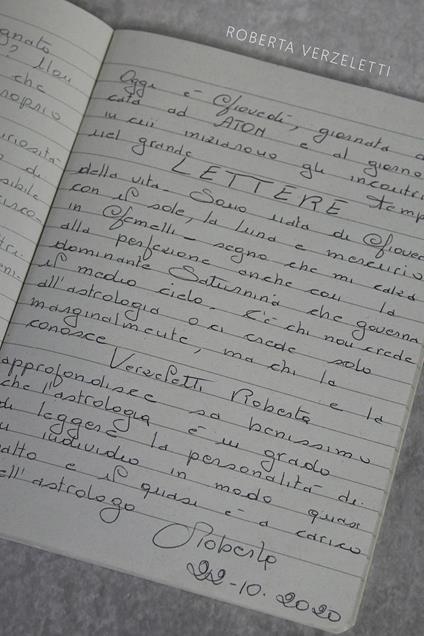 ROBERTA VERZELETTI
gnato
? Non
che
proprio
uriosità
di
sibile
Oggi è Giovedì, giornata d
cata ad ATON e al giorno
in cui iniziarono gli incontri
nel grande temp
LETTERE
della vita - Sono nata di Gioved
con il sole, la luna e mercurio
in Gemelli - segno che mi calza
alla perfezione anche con la
dominante Saturnina che governa
il medio cielo. C'è chi non crede
all'astrologia o ci crede solo
marginalmente, ma chi la
conosce e la
Verzeletti Roberta
approfondisce sa benissimo
che l'astrologia è in grado
di leggere la personalità di
un individuo in modo quasi
atto e il quasi è a carico
ell'astrologo
Roberta
22-10-2020